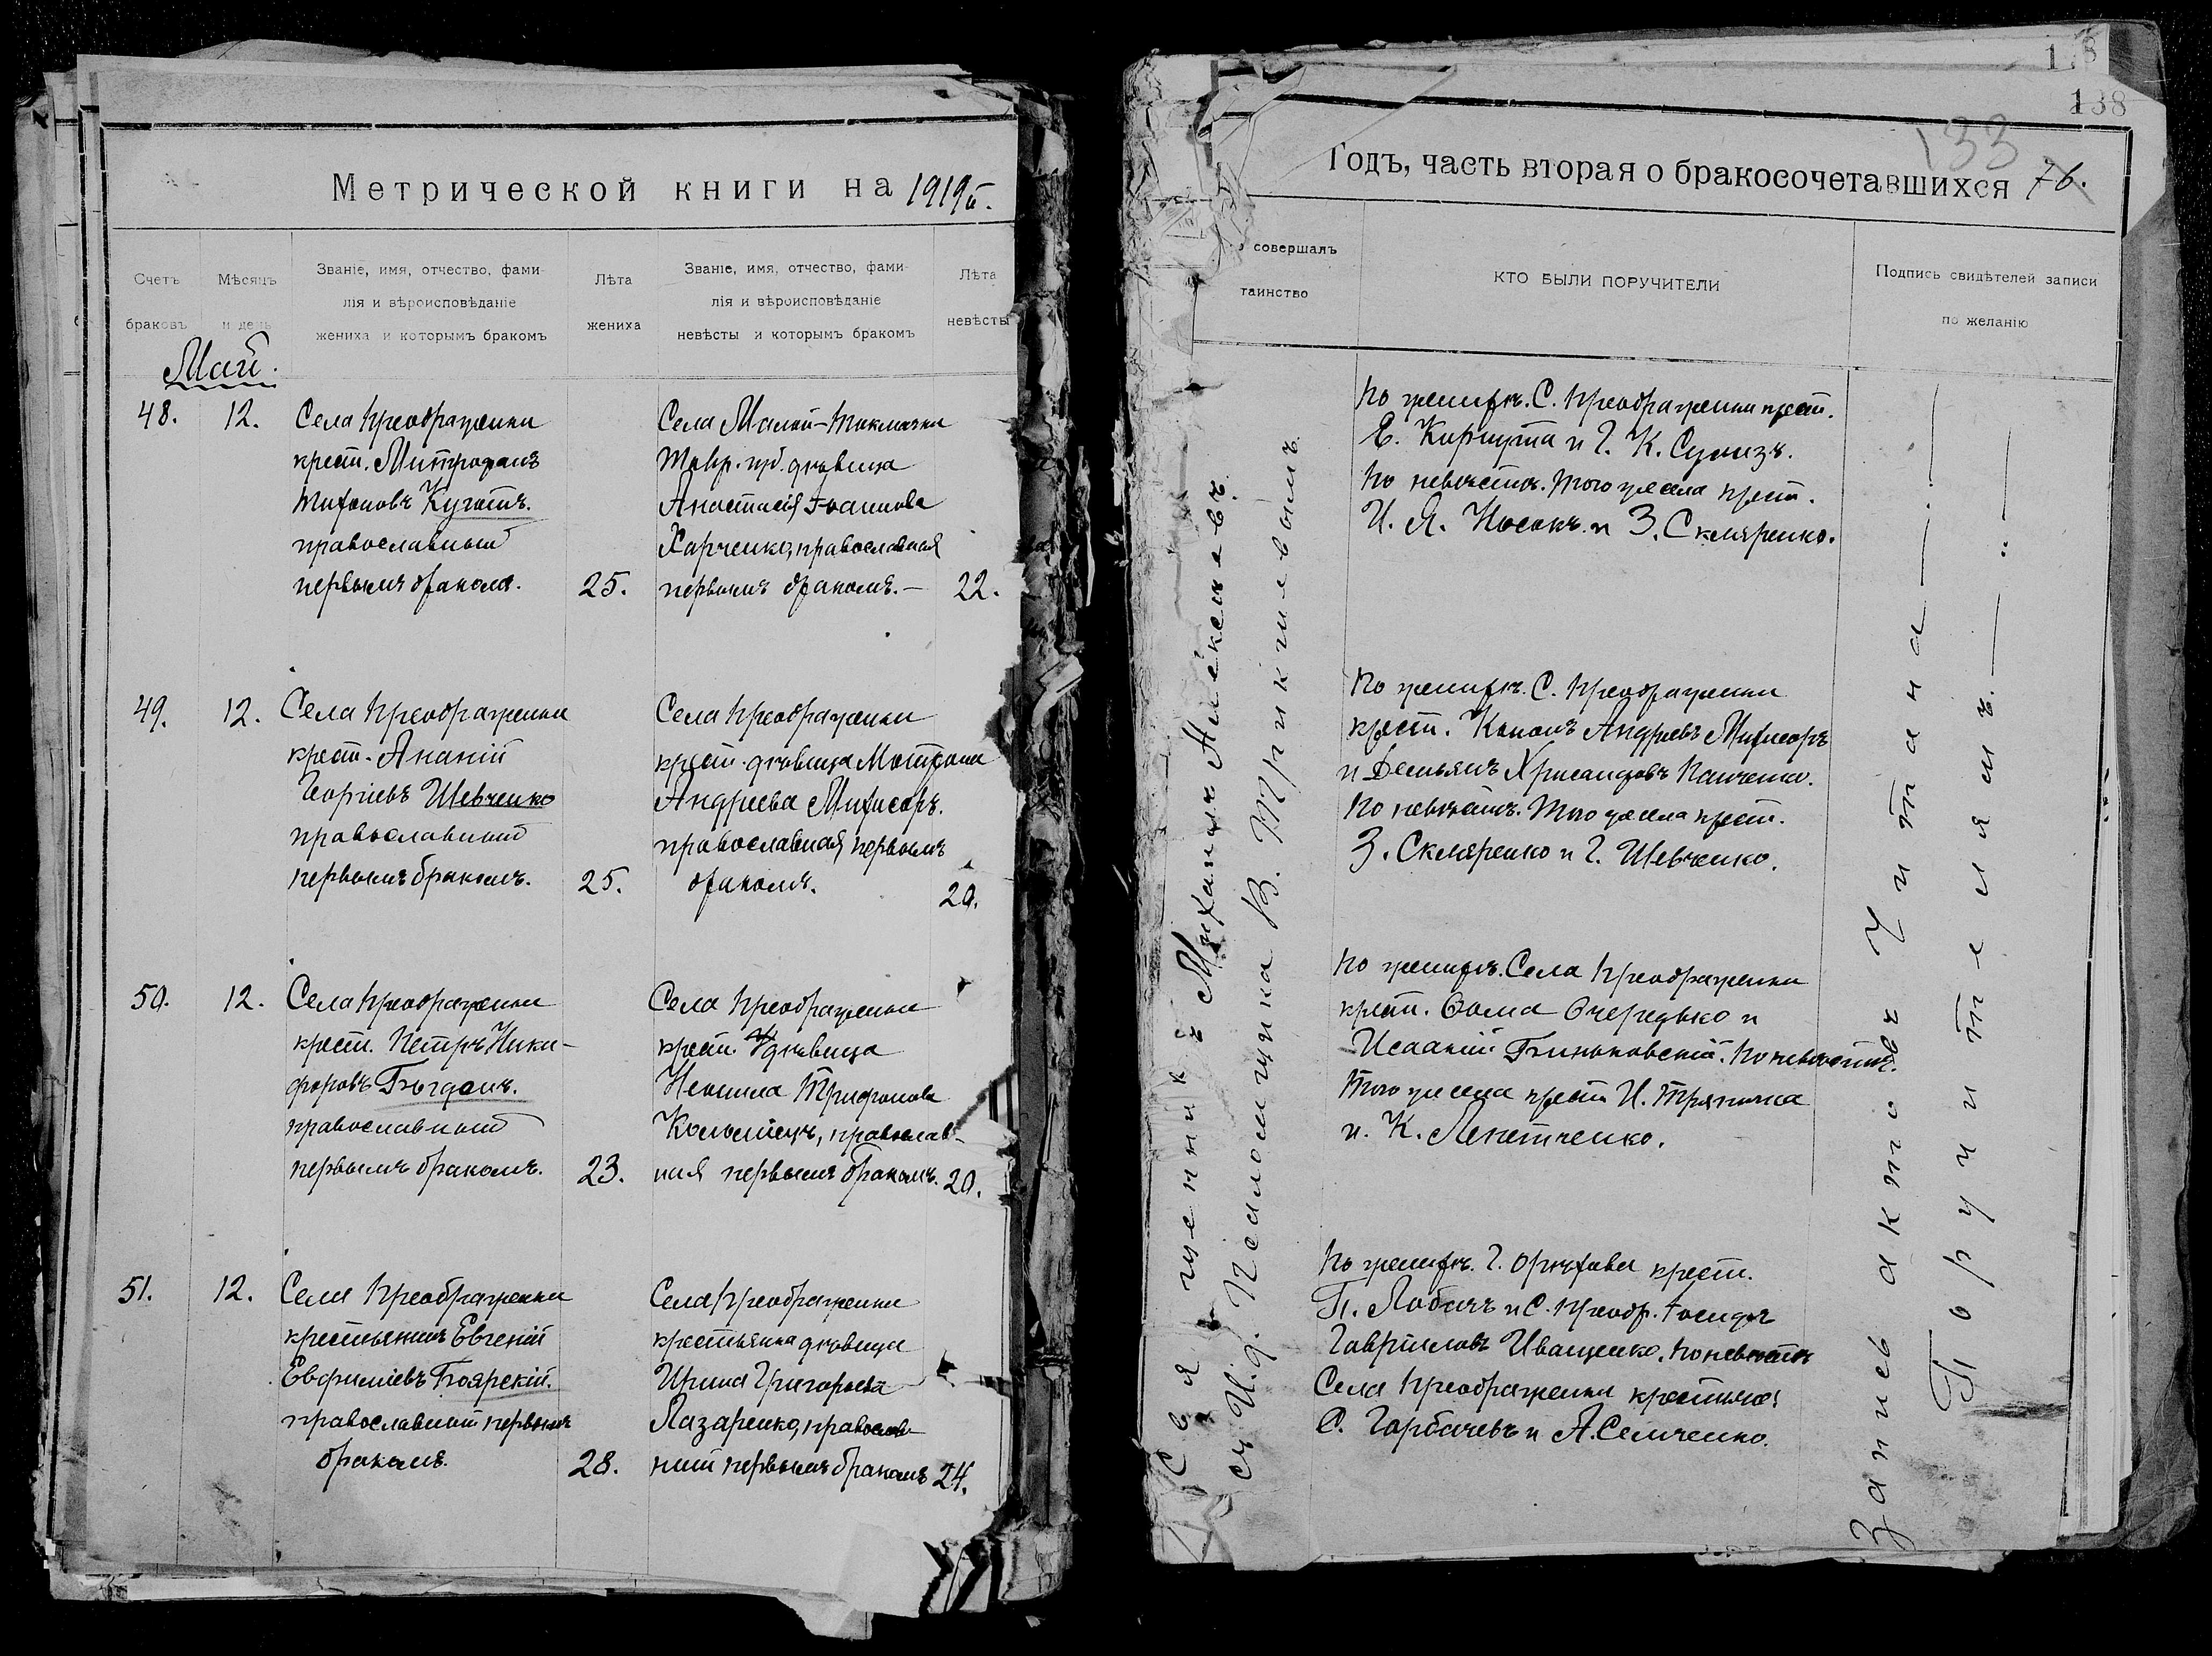 Метрической книги на 1919 г.
Счетъ
браковъ
Мѣсяцъ
и день
Званіе, имя, отчество, фами-
лія и вѣроисповѣданіе
жениха и которымъ бракомъ
Лѣта
жениха
Званіе, имя, отчество, фами-
лія и вѣроисповѣданіе
невѣсты и которымъ бракомъ
Лѣта
невѣсты
Май.
48.
12.
Села Преображенки
крест. Митрофанъ
православный
первымъ бракомъ.
25.
Села Малой-Токмачки
Тавр. губ. дѣвица
Анастасія Іоаннова
Харченко, православная
первымъ бракомъ. —
22.
49.
12.
Села Преображенки
крест. Ананій
Георгіевъ Шевченко
православный
первымъ бракомъ.
25.
Села Преображенки
крест. дѣвица Матрона
Андреева
православная первымъ
бракомъ.
20.
50.
12.
Села Преображенки
крест. Петръ Ники-
форовъ
православный
первымъ бракомъ.
23.
Села Преображенки
крест. дѣвица
Неонила Трифонова
православ-
ная первымъ бракомъ.
20.
51.
12.
Села Преображенки
крестьянинъ Евгеній
Евфиміевъ Боярскій.
православный первымъ
бракомъ.
28.
Села Преображенки
крестьянка дѣвица
Ирина Григорьева
Лазаренко, православ-
ный первымъ бракомъ
24.
138
133
76.
Годъ, часть вторая о бракосочетавшихся
совершалъ
таинство
КТО БЫЛИ ПОРУЧИТЕЛИ
Подпись свидѣтелей записи
по желанію
Священникъ Михаилъ
съ И. д. Псаломщика В.
По женихѣ. С. Преображенки крест.
Е. и Г. К.
По невѣстѣ. Того же села крест.
И. Я. Носокъ и З. Скляренко.
По женихѣ. С. Преображенки
крест. Кононъ Андреевъ
и Демьянъ Хрисанфовъ Панченко.
По невѣстѣ. Того же села крест.
З. Скляренко и Г. Шевченко.
По женихѣ. Села Преображенки
крест. Ѳома Очередько и
Исаакій По невѣстѣ.
Того же села крест. И. Тряпичка
и К.
По женихѣ. Г. Орѣхова крест.
П. и С. Преобр. Іосифъ
Гавриловъ Иващенко, по невѣстѣ
Села Преображенки крестьяне:
С. Горбачевъ и А. Семченко.
Запись актовъ читана
Поручителямъ.